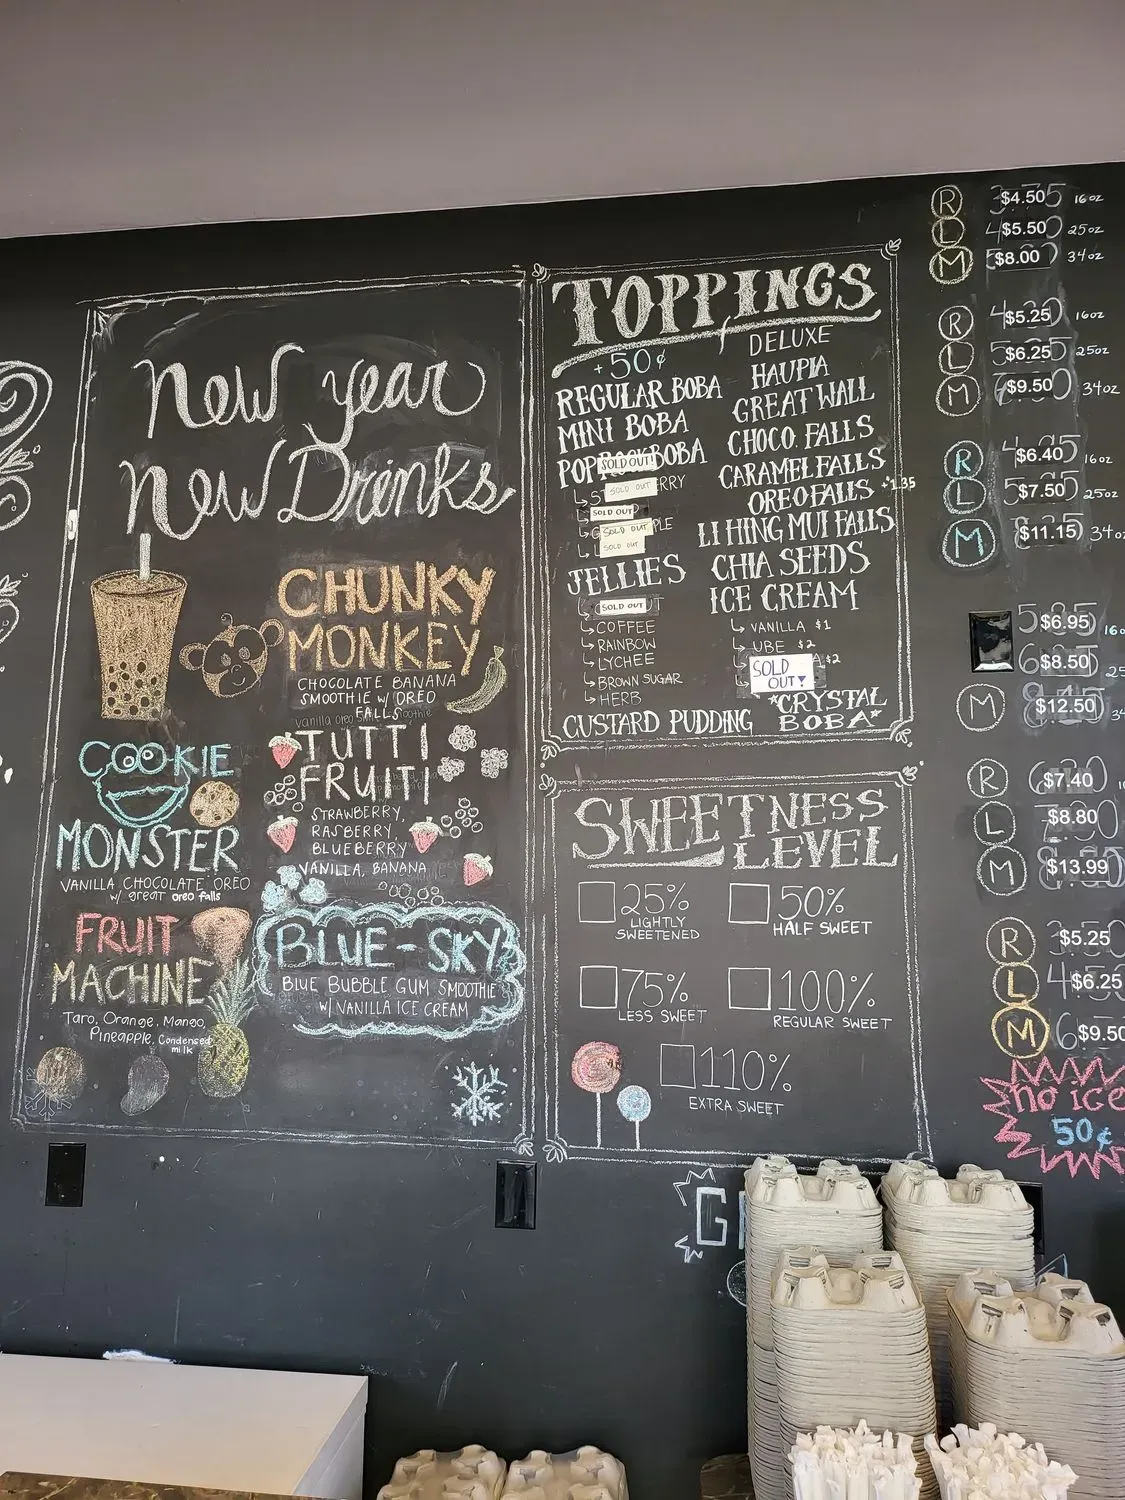 new year
new Drinks
CHUNKY
MONKEY
CHOCOLATE BANANA
SMOOTHIE W/ OREO
FALLS
COOKIE
MONSTER
VANILLA CHOCOLATE OREO
w/ great oreo falls
TUTTI
FRUITI
STRAWBERRY,
RASBERRY,
BLUEBERRY
VANILLA, BANANA
FRUIT
MACHINE
Taro, Orange, Mango,
Pineapple, Condensed
milk
BLUE-SKY
BLUE BUBBLE GUM SMOOTHIE
W/ VANILLA ICE CREAM
TOPPINGS
+50¢
REGULAR BOBA
MINI BOBA
POP ROCK BOBA
SOLD OUT!
SOLD OUT
SOLD OUT
SOLD OUT
SOLD OUT
JELLIES
SOLD OUT
COFFEE
RAINBOW
LYCHEE
BROWN SUGAR
HERB
CUSTARD PUDDING
DELUXE
HAUPIA
GREAT WALL
CHOCO. FALLS
CARAMEL FALLS
OREO FALLS +1.35
LI HING MUI FALLS
CHIA SEEDS
ICE CREAM
VANILLA $1
UBE $2
SOLD OUT! $2
*CRYSTAL
BOBA*
SWEETNESS
LEVEL
25%
LIGHTLY
SWEETENED
50%
HALF SWEET
75%
LESS SWEET
100%
REGULAR SWEET
110%
EXTRA SWEET
R $4.50 16oz
L $5.50 25oz
M $8.00 34oz
R $5.25 16oz
L $6.25 25oz
M $9.50 34oz
R $6.40 16oz
L $7.50 25oz
M $11.15 34o
$6.95 16o
$8.50 25
M $12.50 34
R $7.40
L $8.80
M $13.99
R $5.25
L $6.25
M $9.50
no ice
50¢
G